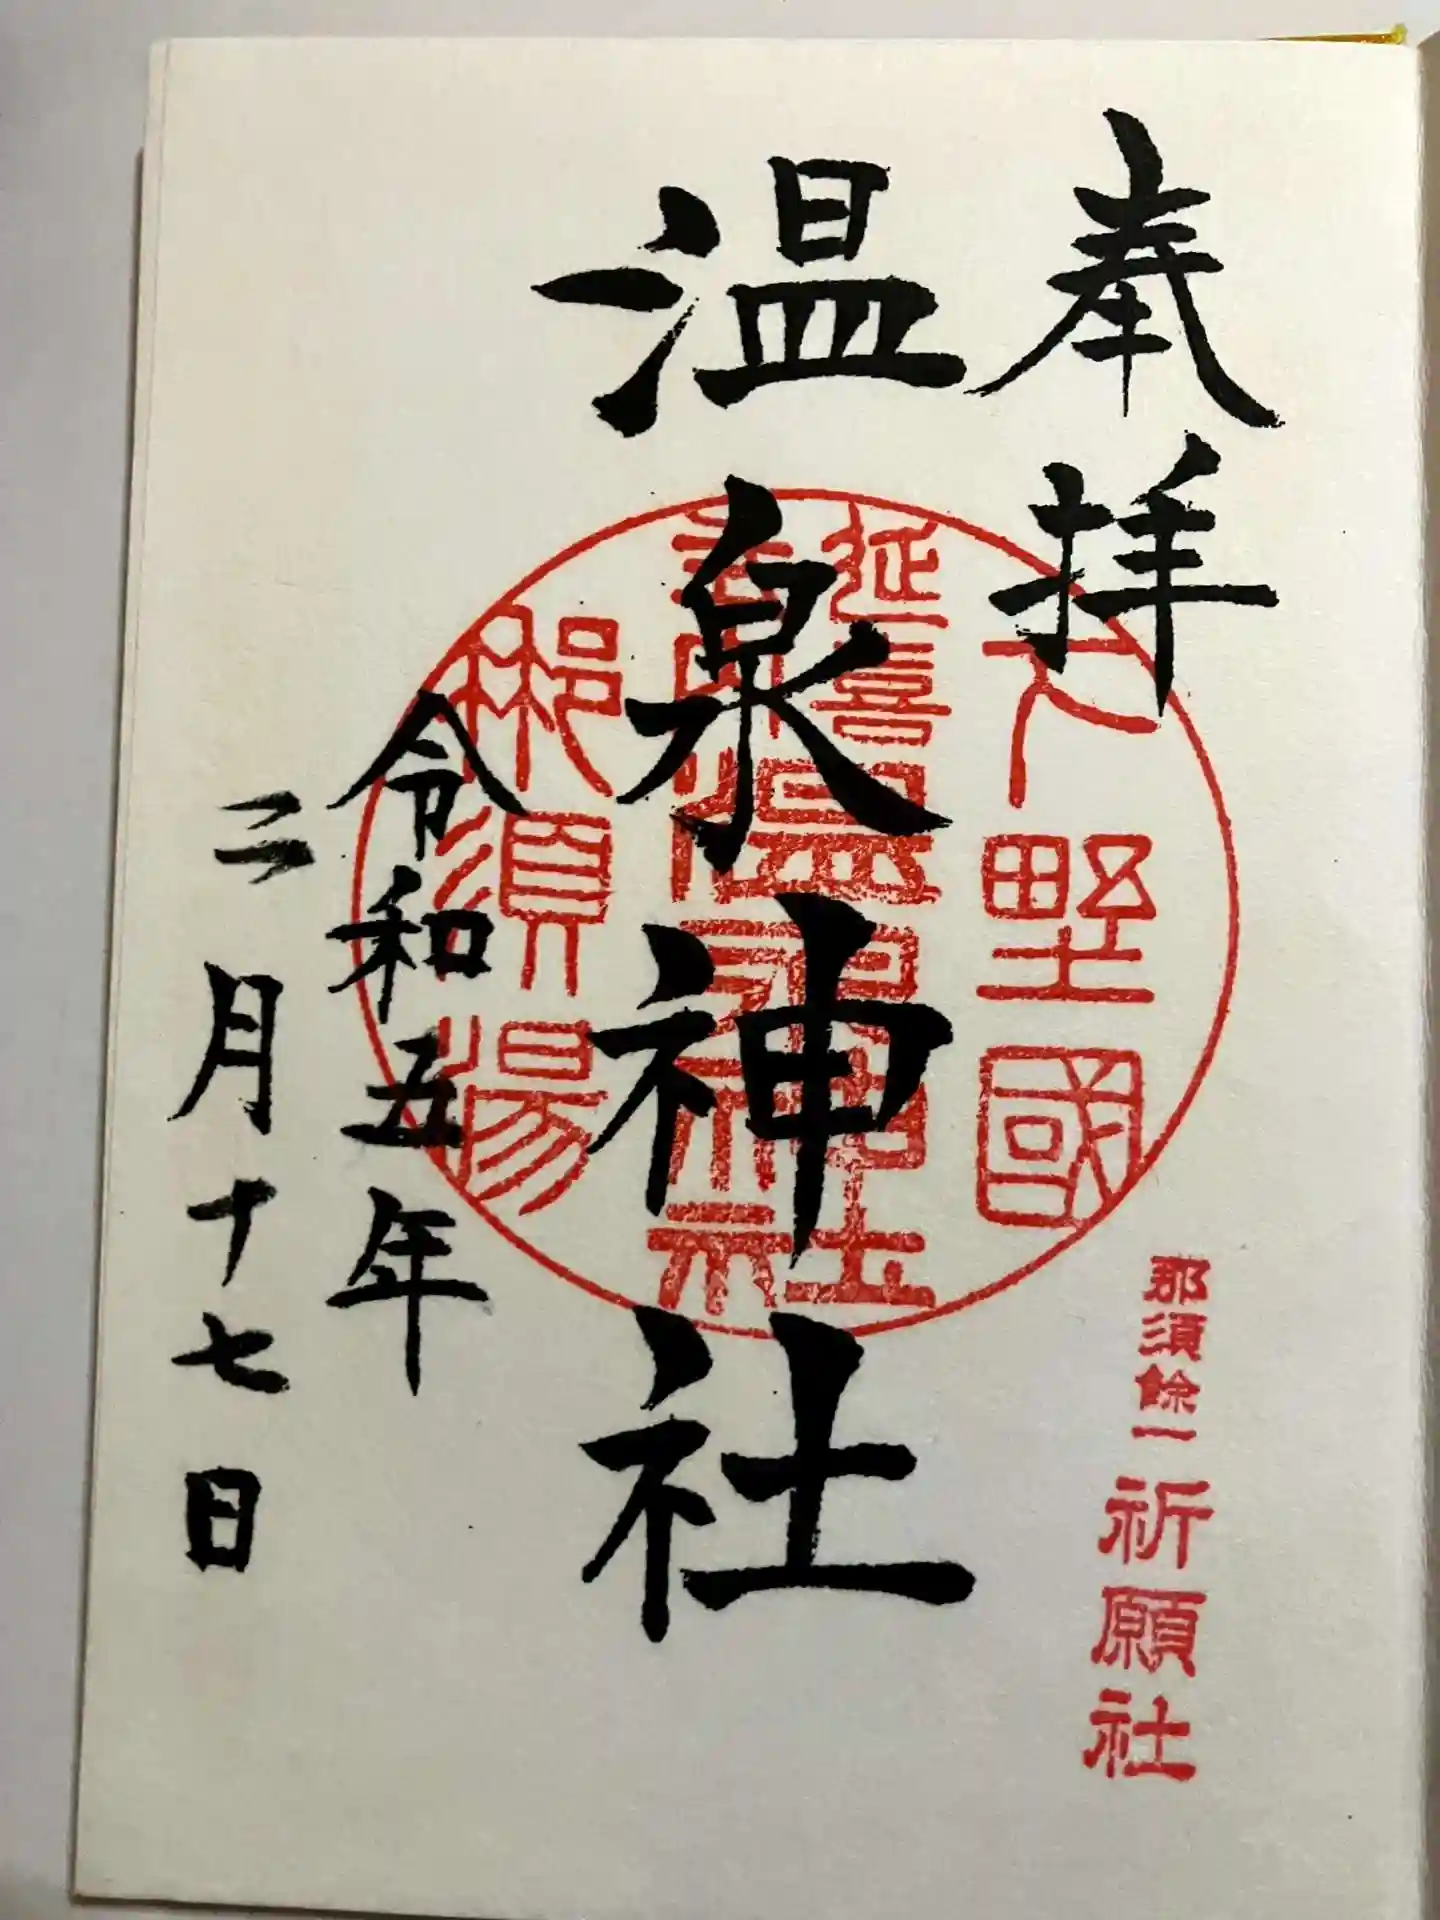 奉拝
那須餘一祈願社
下野國
延喜
式内
温泉神社
那須湯
温泉神社
令和五年
二月十七日